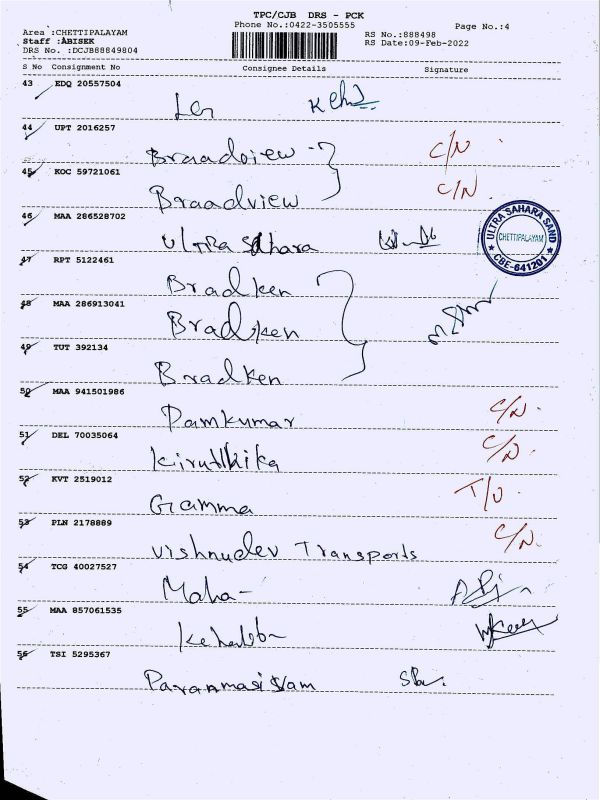 TPC/CJB DRS - PCK
Phone No.:0422-3505555
Page No.:4
Area :CHETTIPALAYAM
Staff :ABISEK
DRS No. :DCJB88849804
RS No.:888498
RS Date:09-Feb-2022
S No Consignment No Consignee Details Signature
43 EDQ 20557504
44 UPT 2016257
Braadview C/N
45 KOC 59721061
Braadview C/N
46 MAA 286528702
Ultra Sahara
ULTRA SAHARA SAND
CHETTIPALAYAM
CBE-641201
47 RPT 5122461
Bradken
48 MAA 286913041
Bradken
49 TUT 392134
Bradken
50 MAA 941501986
Pamkumar C/N
51 DEL 70035064
Kiruthika C/N
52 KVT 2519012
Gamma T/O
53 PLN 2178889
Vishnudev Transports C/N
54 TCG 40027527
Maha
55 MAA 857061535
56 TSI 5295367